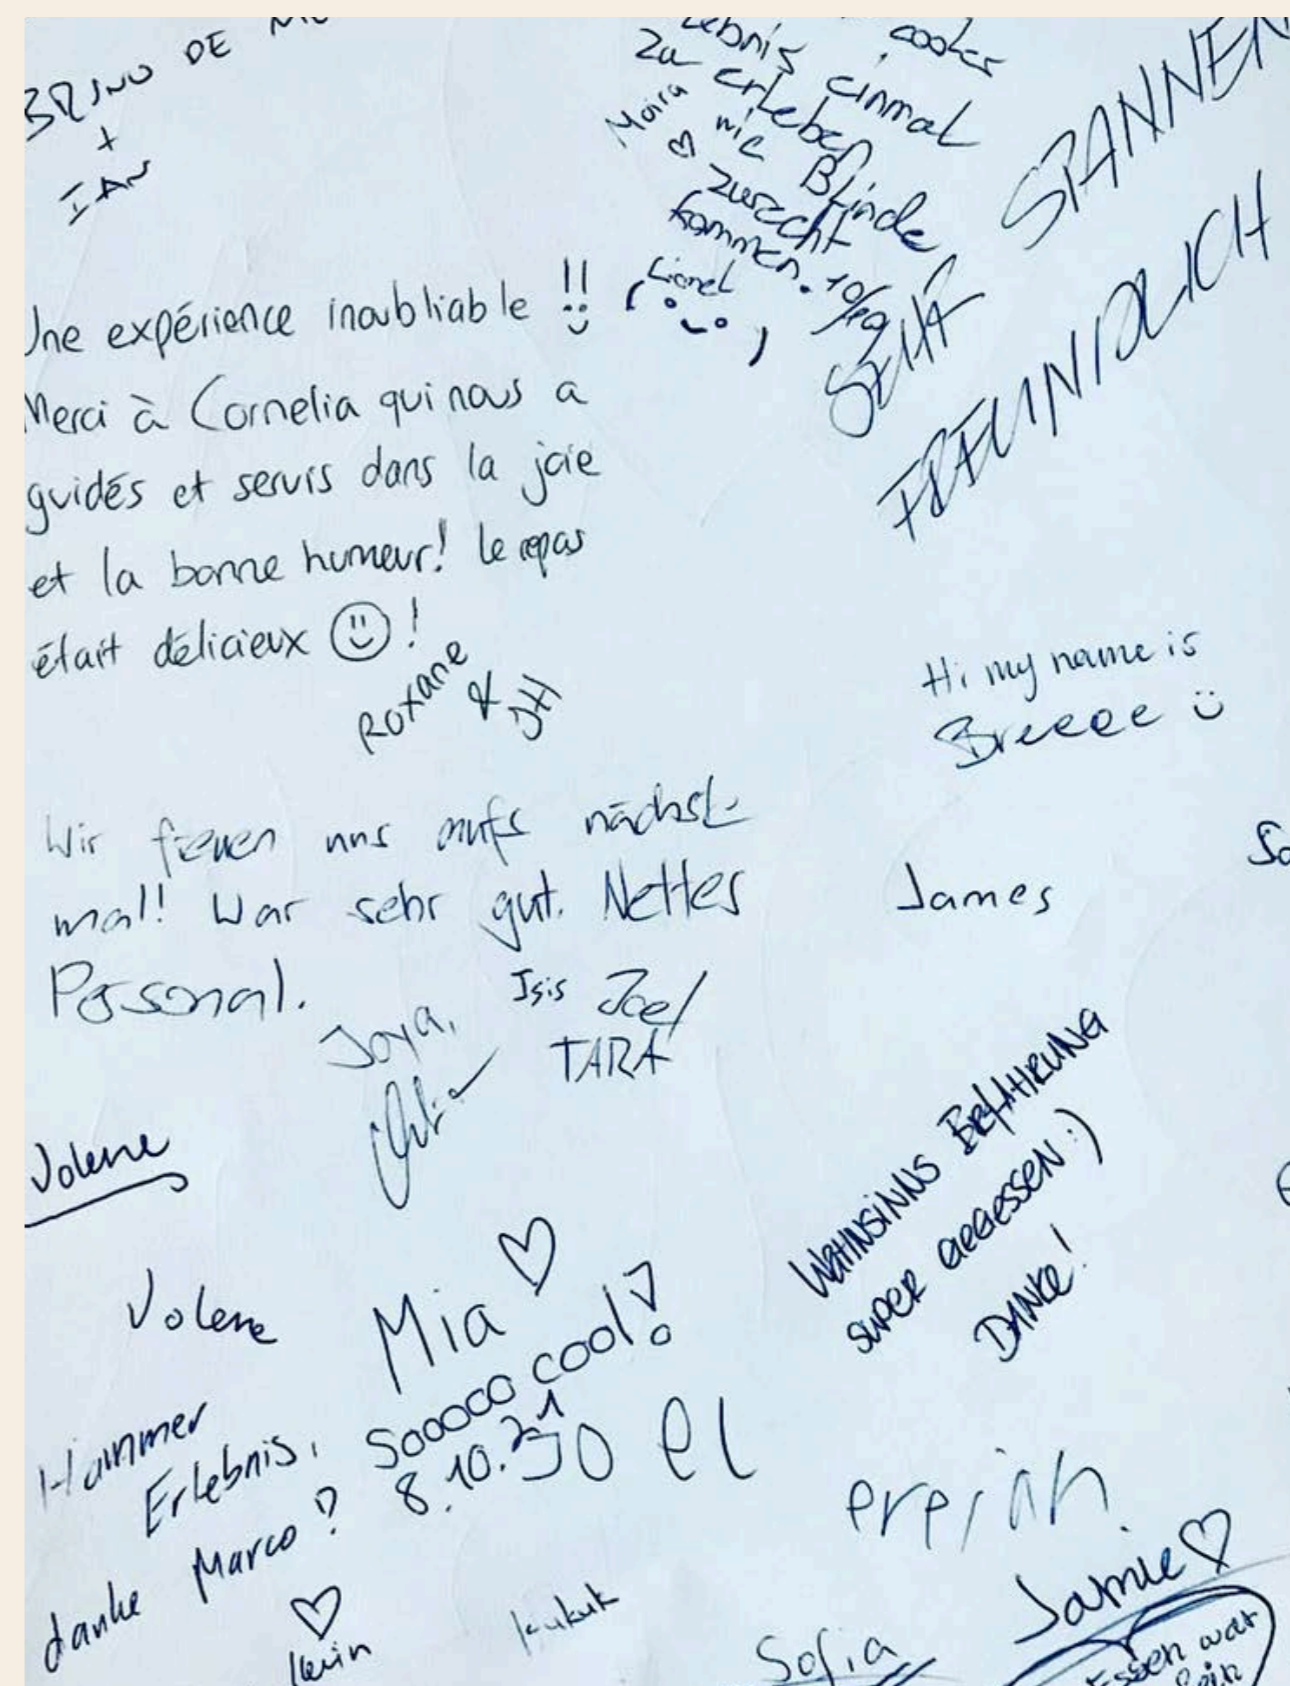 BRUNO DE
+
IAN
cooles
einmal
zu erleben
wie Blinde
zurecht
kommen. 10/10
Moira
♡
Lionel
SPANNEN
SEHR
FREUNDLICH
Une expérience inoubliable !!
Merci à Cornelia qui nous a
guidés et servis dans la joie
et la bonne humeur! Le repas
était délicieux ☺ !
Roxane
&
JH
Hi my name is
Breeee ü
Wir freuen uns aufs nächste
mal! War sehr gut. Nettes
Personal.
James
Joya,
Isis Joel
TARA
WAHNSINNS ERFAHRUNG
SUPER GEGESSEN :)
DANKE!
Yolene
Yolene
Mia ♡
Sooooo cool!
8.10.21
JO El
Hammer
Erlebnis,
danke Marco!
♡
Kevin
Kukuk
Jamie ♡
Sofia
Essen war